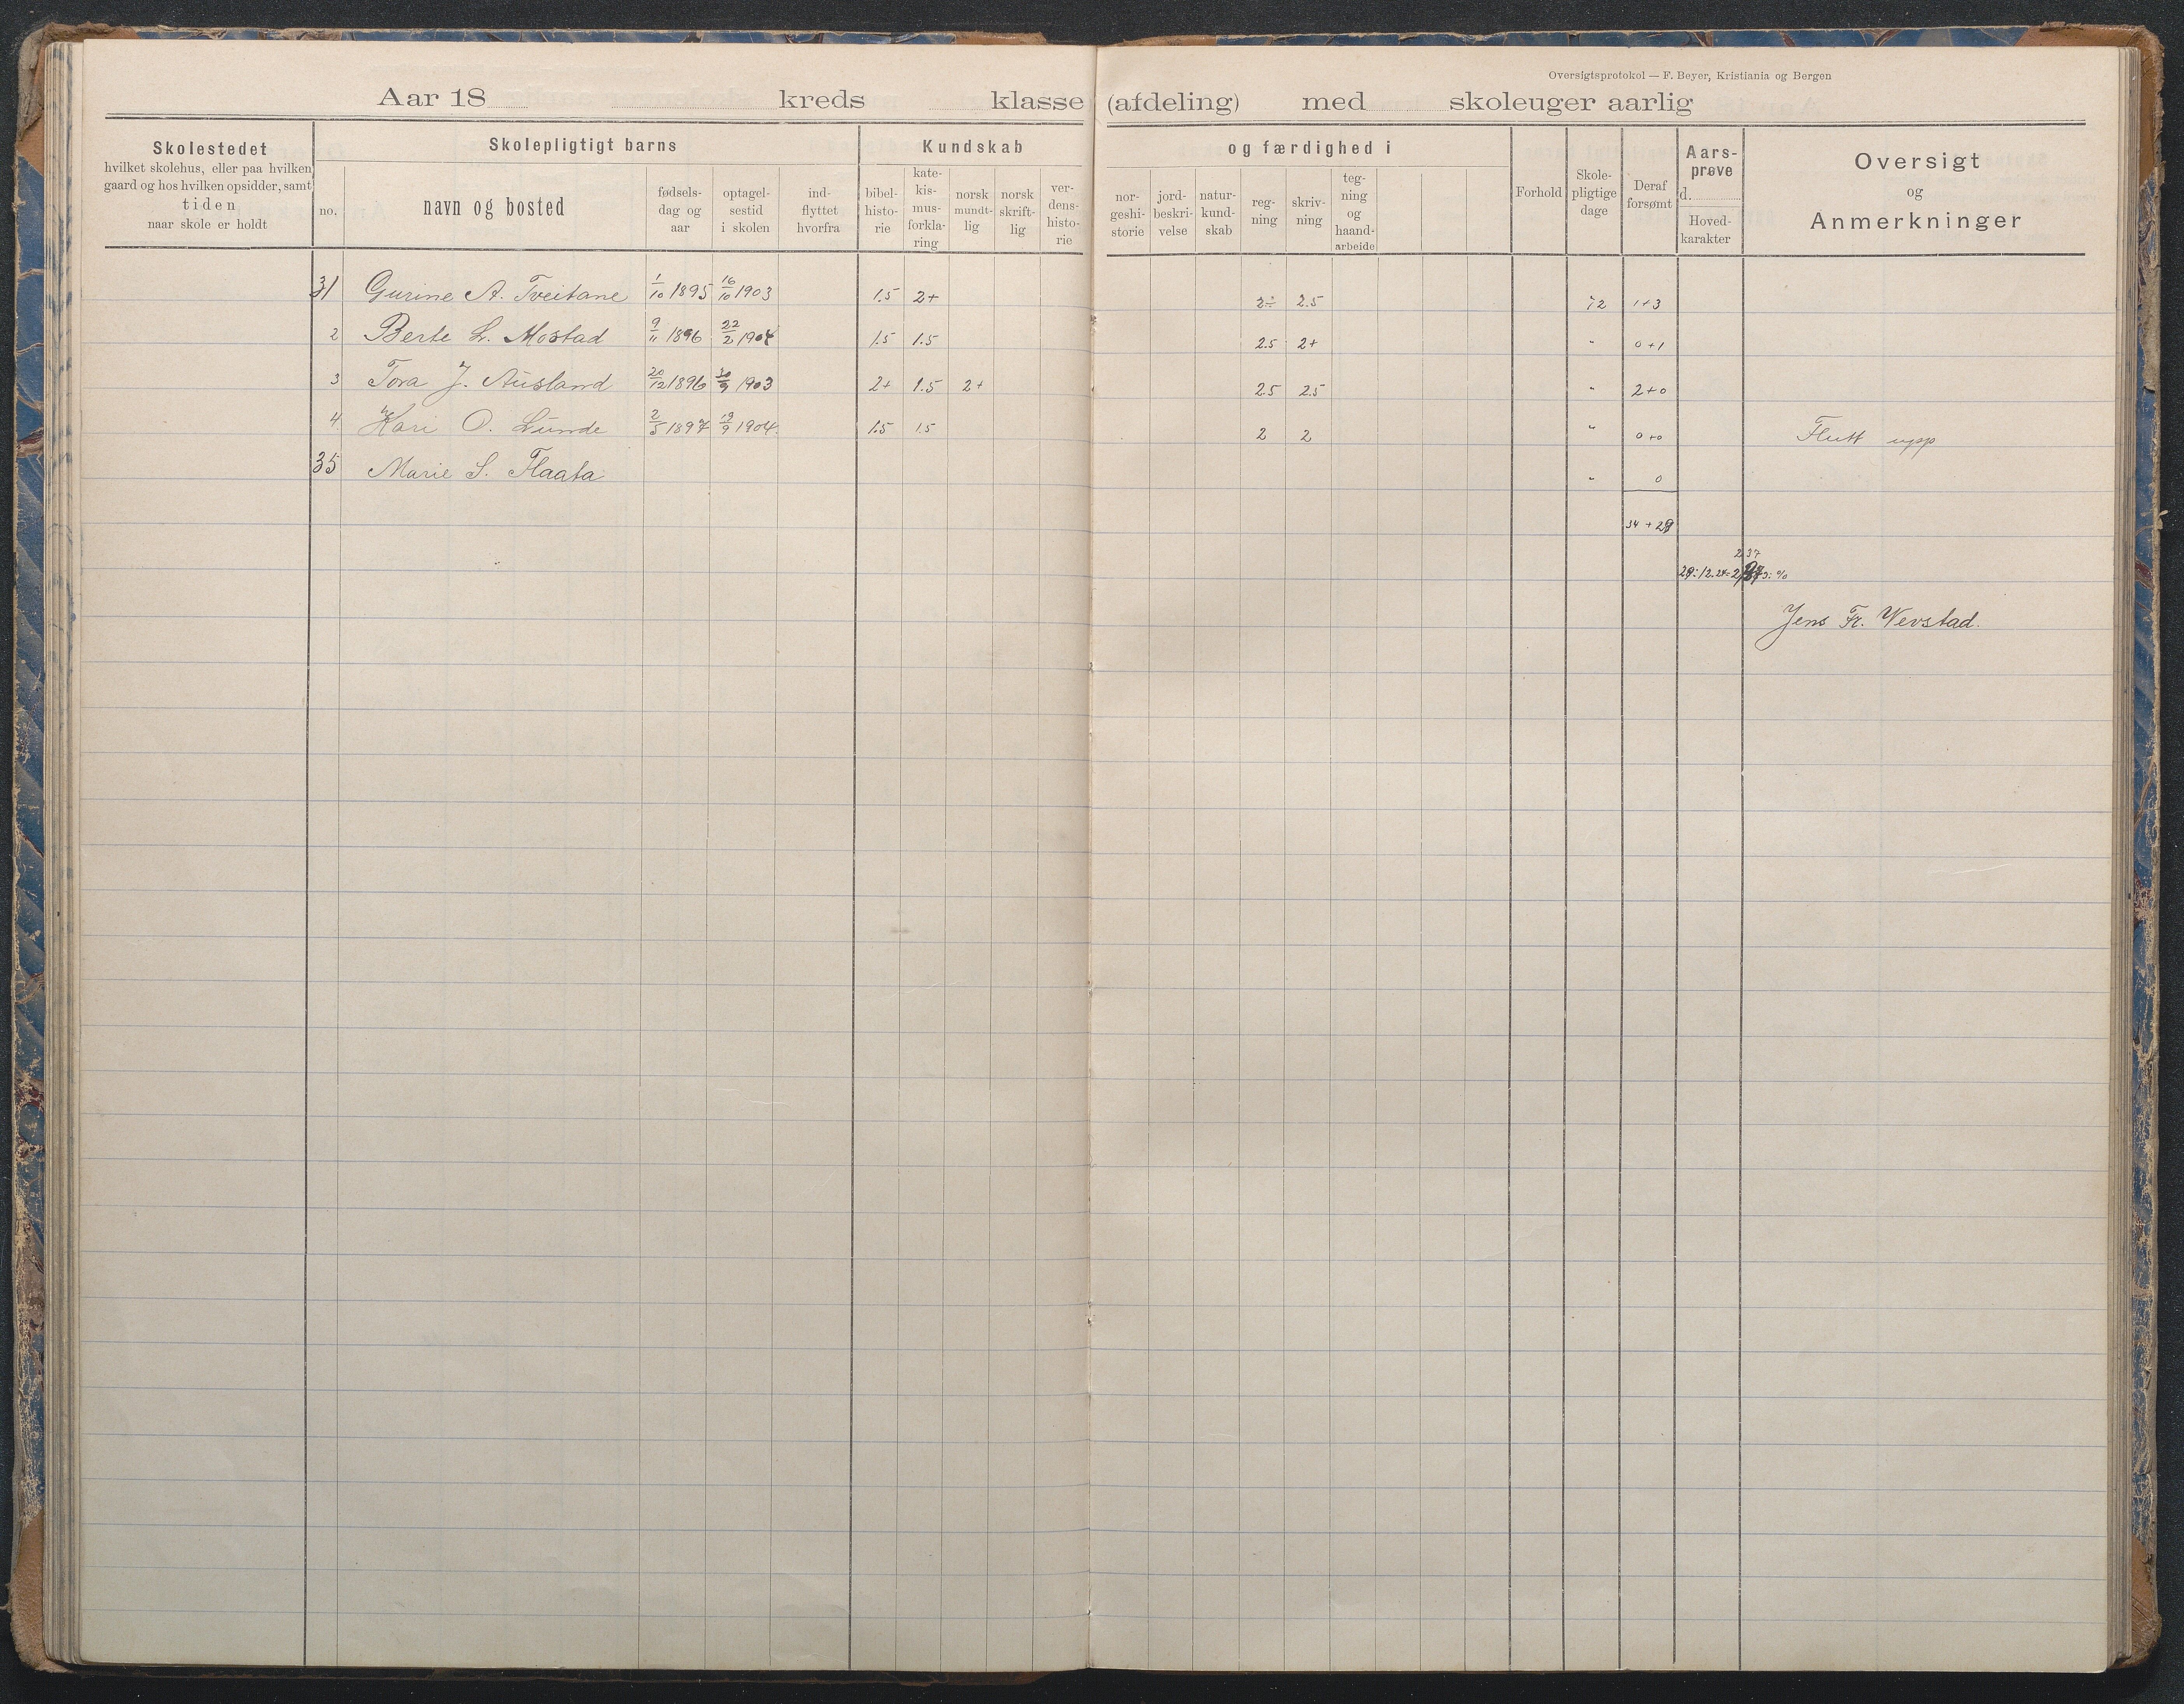 Oversigtsprotokol — F. Beyer, Kristiania og Bergen
Aar 18 kreds klasse (afdeling) med skoleuger aarlig
Skolestedet
hvilket skolehus, eller paa hvilken
gaard og hos hvilken opsidder, samt
tiden
naar skole er holdt
Skolepligtigt barns
no.
navn og bosted
fødsels-
dag og
aar
optagel-
sestid
i skolen
ind-
flyttet
hvorfra
Kundskab
bibel-
histo-
rie
kate-
kis-
mus-
forkla-
ring
norsk
mundt-
lig
norsk
skrift-
lig
ver-
dens-
histo-
rie
og færdighed i
nor-
geshi-
storie
jord-
beskri-
velse
natur-
kund-
skab
reg-
ning
skriv-
ning
teg-
ning
og
haand-
arbeide
Forhold
Skole-
pligtige
dage
Deraf
forsømt
Aars-
prøve
d.
Hoved-
karakter
Oversigt
og
Anmerkninger
31 Gurine A. Tveitane 1/10 1895 16/10 1903 1.5 2+ 2÷ 2.5 72 1+3
2 Berte L. Mostad 9/11 1896 22/2 1904 1.5 1.5 2.5 2+ " 0+1
3 Tora J. Ausland 20/12 1896 30/9 1903 2+ 1.5 2+ 2.5 2.5 " 2+0
4 Kari O. Lunde 2/5 1897 19/9 1904. 1.5 1.5 2 2 " 0+0 Flutt upp
35 Marie S. Flaata " 0
34 + 29
2 37
Jens Fr. Vevstad.